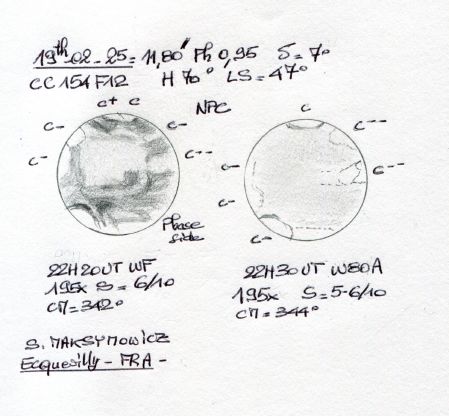 19th-02-25= 11,80" Ph 0,95 δ= 7°
CC 154 F12 H 70° LS= 47°
C+ C NPC C
C- C- C--
C- C-- C- C--
C-
Phase side C-
22H20UT WF 22H30UT W80A
195x S= 6/10 195x S=5-6/10
CM= 342° CM= 344°
S. MAKSYMOWICZ
Ecquevilly - FRA -